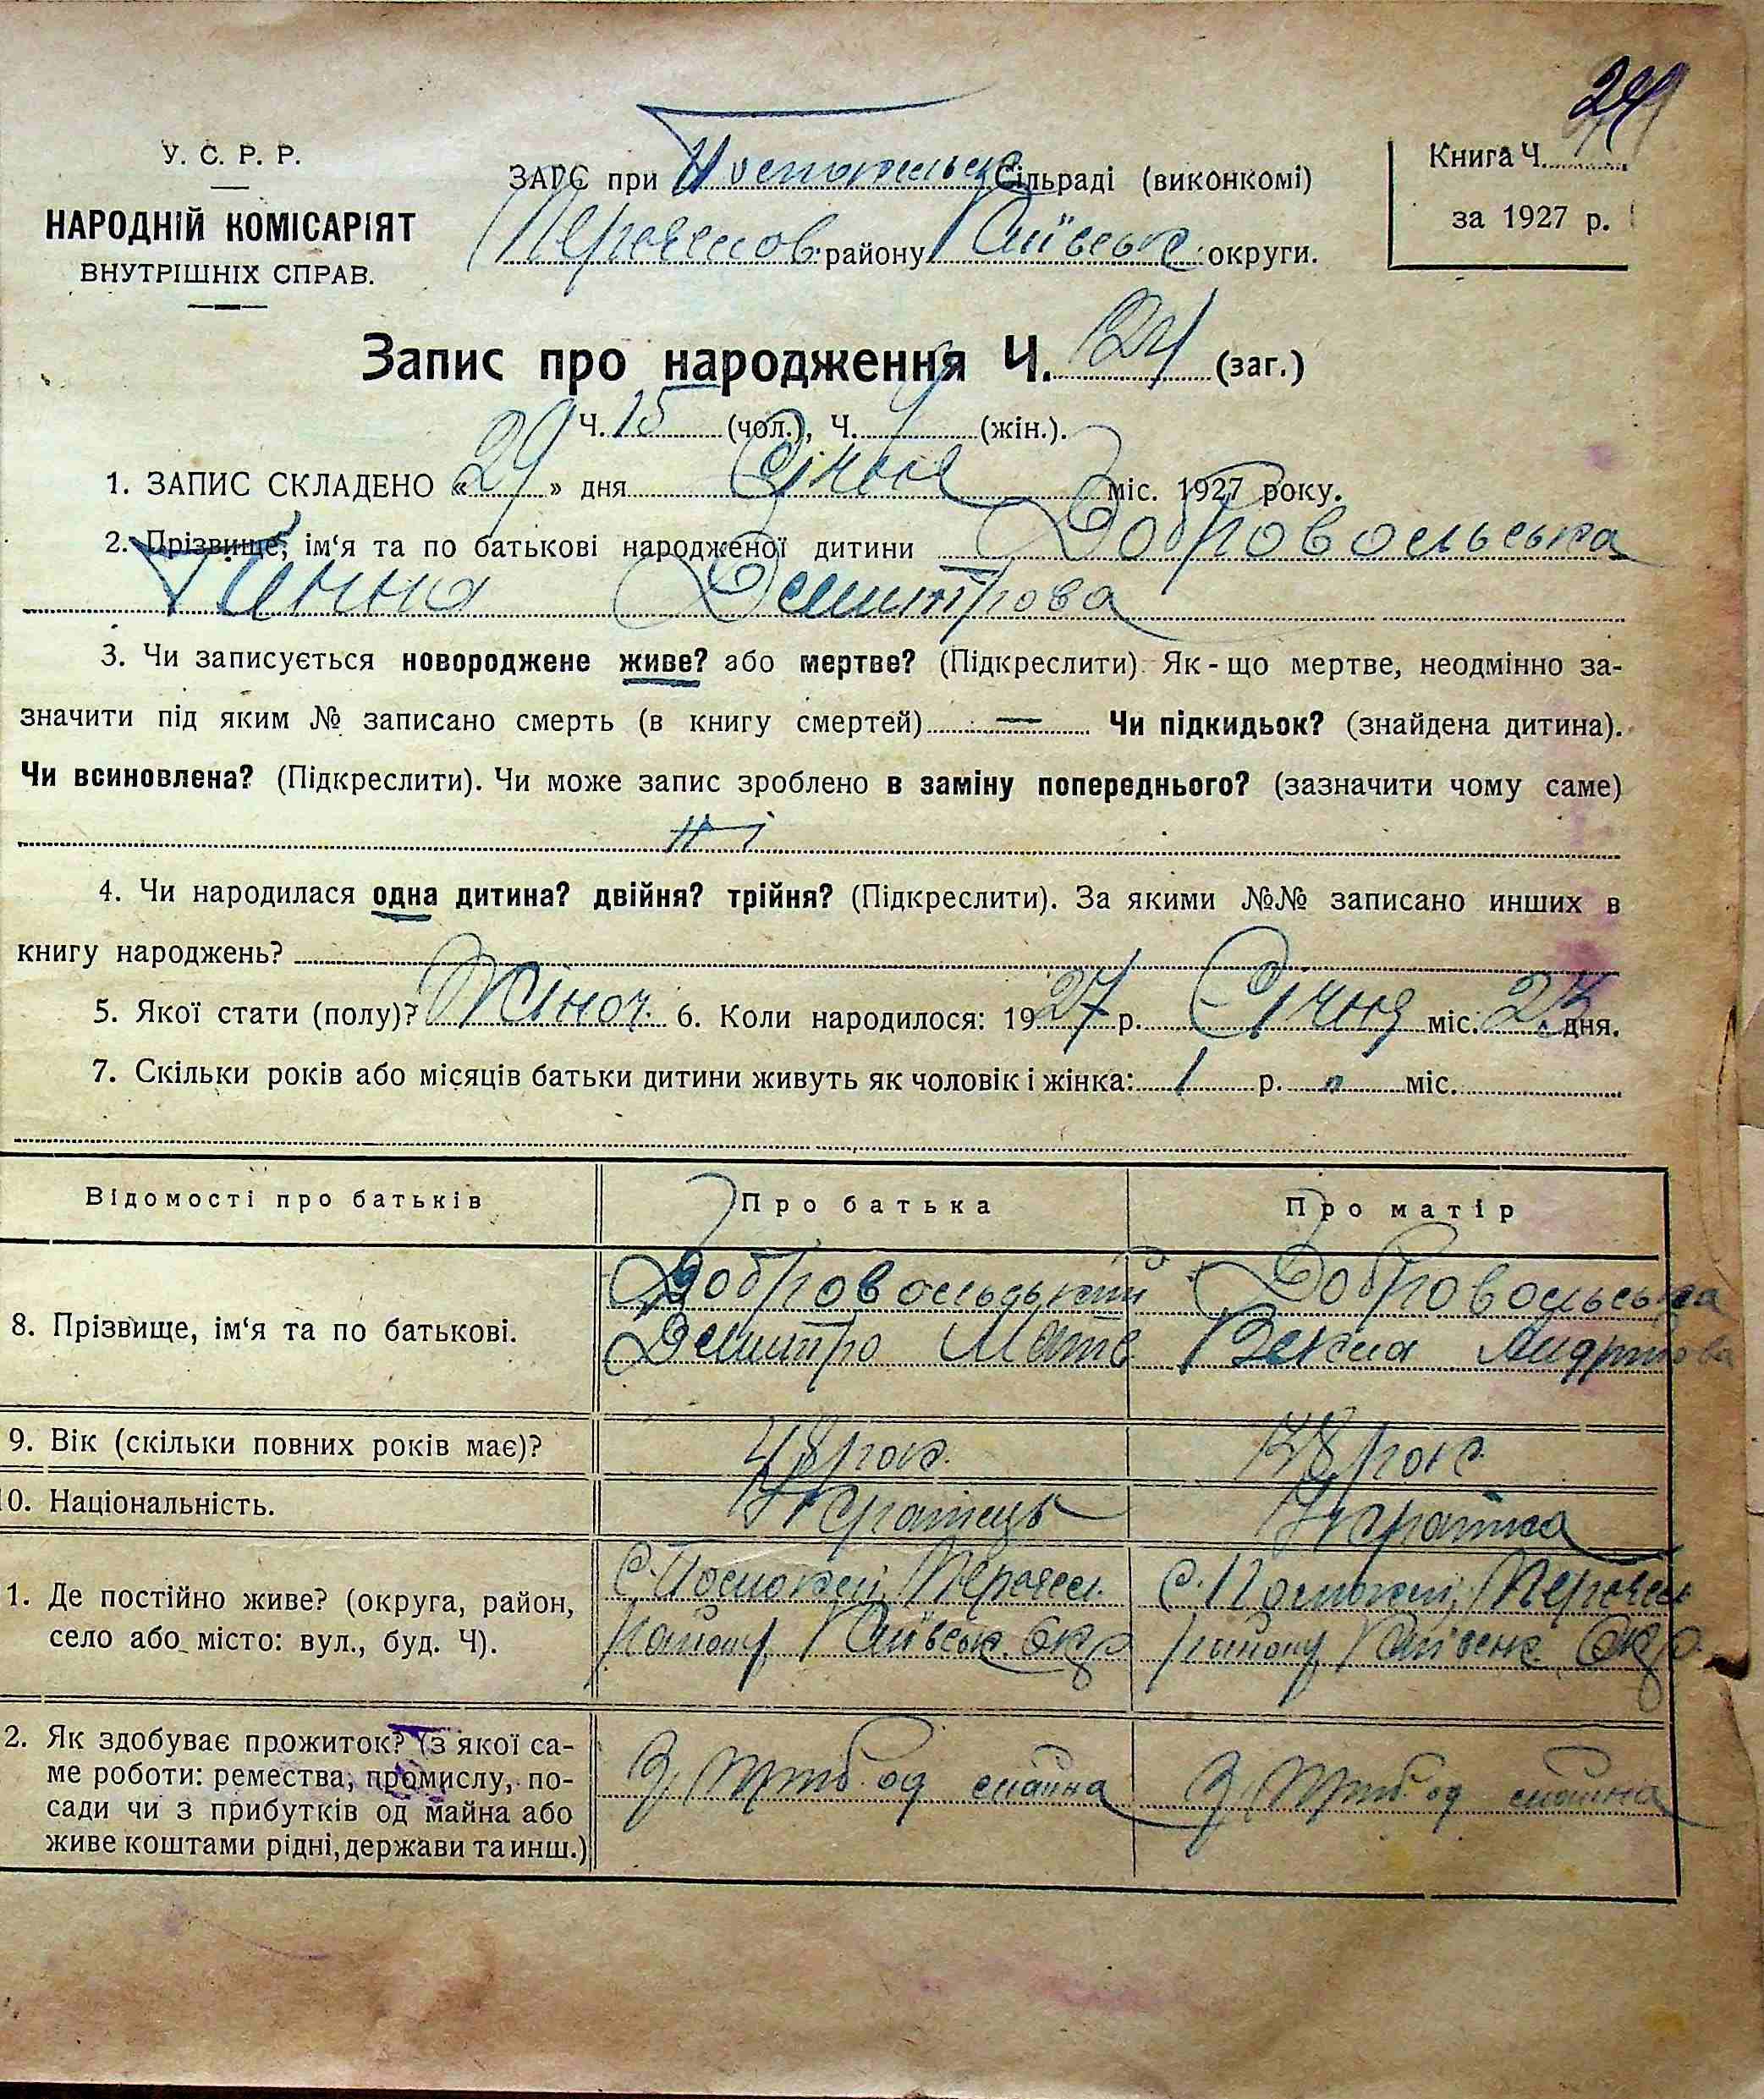 24
У. С. Р. Р.
НАРОДНІЙ КОМІСАРІЯТ
ВНУТРІШНІХ СПРАВ.
ЗАГС при Сільраді (виконкомі)
району Київськ округи.
Книга Ч.
за 1927 р.
Запис про народження Ч. 24 (заг.)
Ч. 15 (чол.), Ч. 9 (жін.).
1. ЗАПИС СКЛАДЕНО « 29 » дня Січня міс. 1927 року.
2. Прізвище, ім‘я та по батькові народженої дитини Добровольська
Ганна Демитрова
3. Чи записується новороджене живе? або мертве? (Підкреслити). Як-що мертве, неодмінно за-
значити під яким № записано смерть (в книгу смертей) — Чи підкидьок? (знайдена дитина).
Чи всиновлена? (Підкреслити). Чи може запис зроблено в заміну попереднього? (зазначити чому саме)
Ні
4. Чи народилася одна дитина? двійня? трійня? (Підкреслити). За якими №№ записано инших в
книгу народжень?
5. Якої стати (полу)? Жіноч. 6. Коли народилося: 1927 р. Січня міс. 23 дня.
7. Скільки років або місяців батьки дитини живуть як чоловік і жінка: 1 р. „ міс.
Відомості про батьків
Про батька
Про матір
8. Прізвище, ім‘я та по батькові.
Добровольський
Демитро Матв.
Добровольська
9. Вік (скільки повних років має)?
48 рок.
рок.
0. Національність.
Українець
Українка
1. Де постійно живе? (округа, район,
село або місто: вул., буд. Ч).
району Київськ. Окр
району Київськ. Окр.
2. Як здобуває прожиток? (з якої са-
ме роботи: ремества, промислу, по-
сади чи з прибутків од майна або
живе коштами рідні, держави та инш.)
З од майна
З од майна